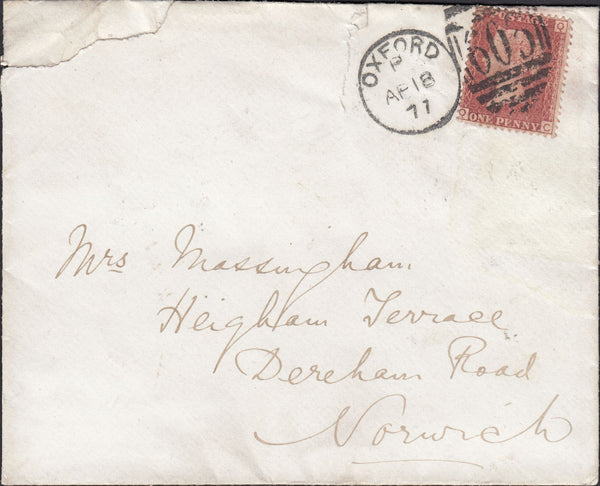 OXFORD
P
AP 18
77
603
POSTAGE
ONE PENNY
Mrs Massingham
Heigham Terrace
Dereham Road
Norwich